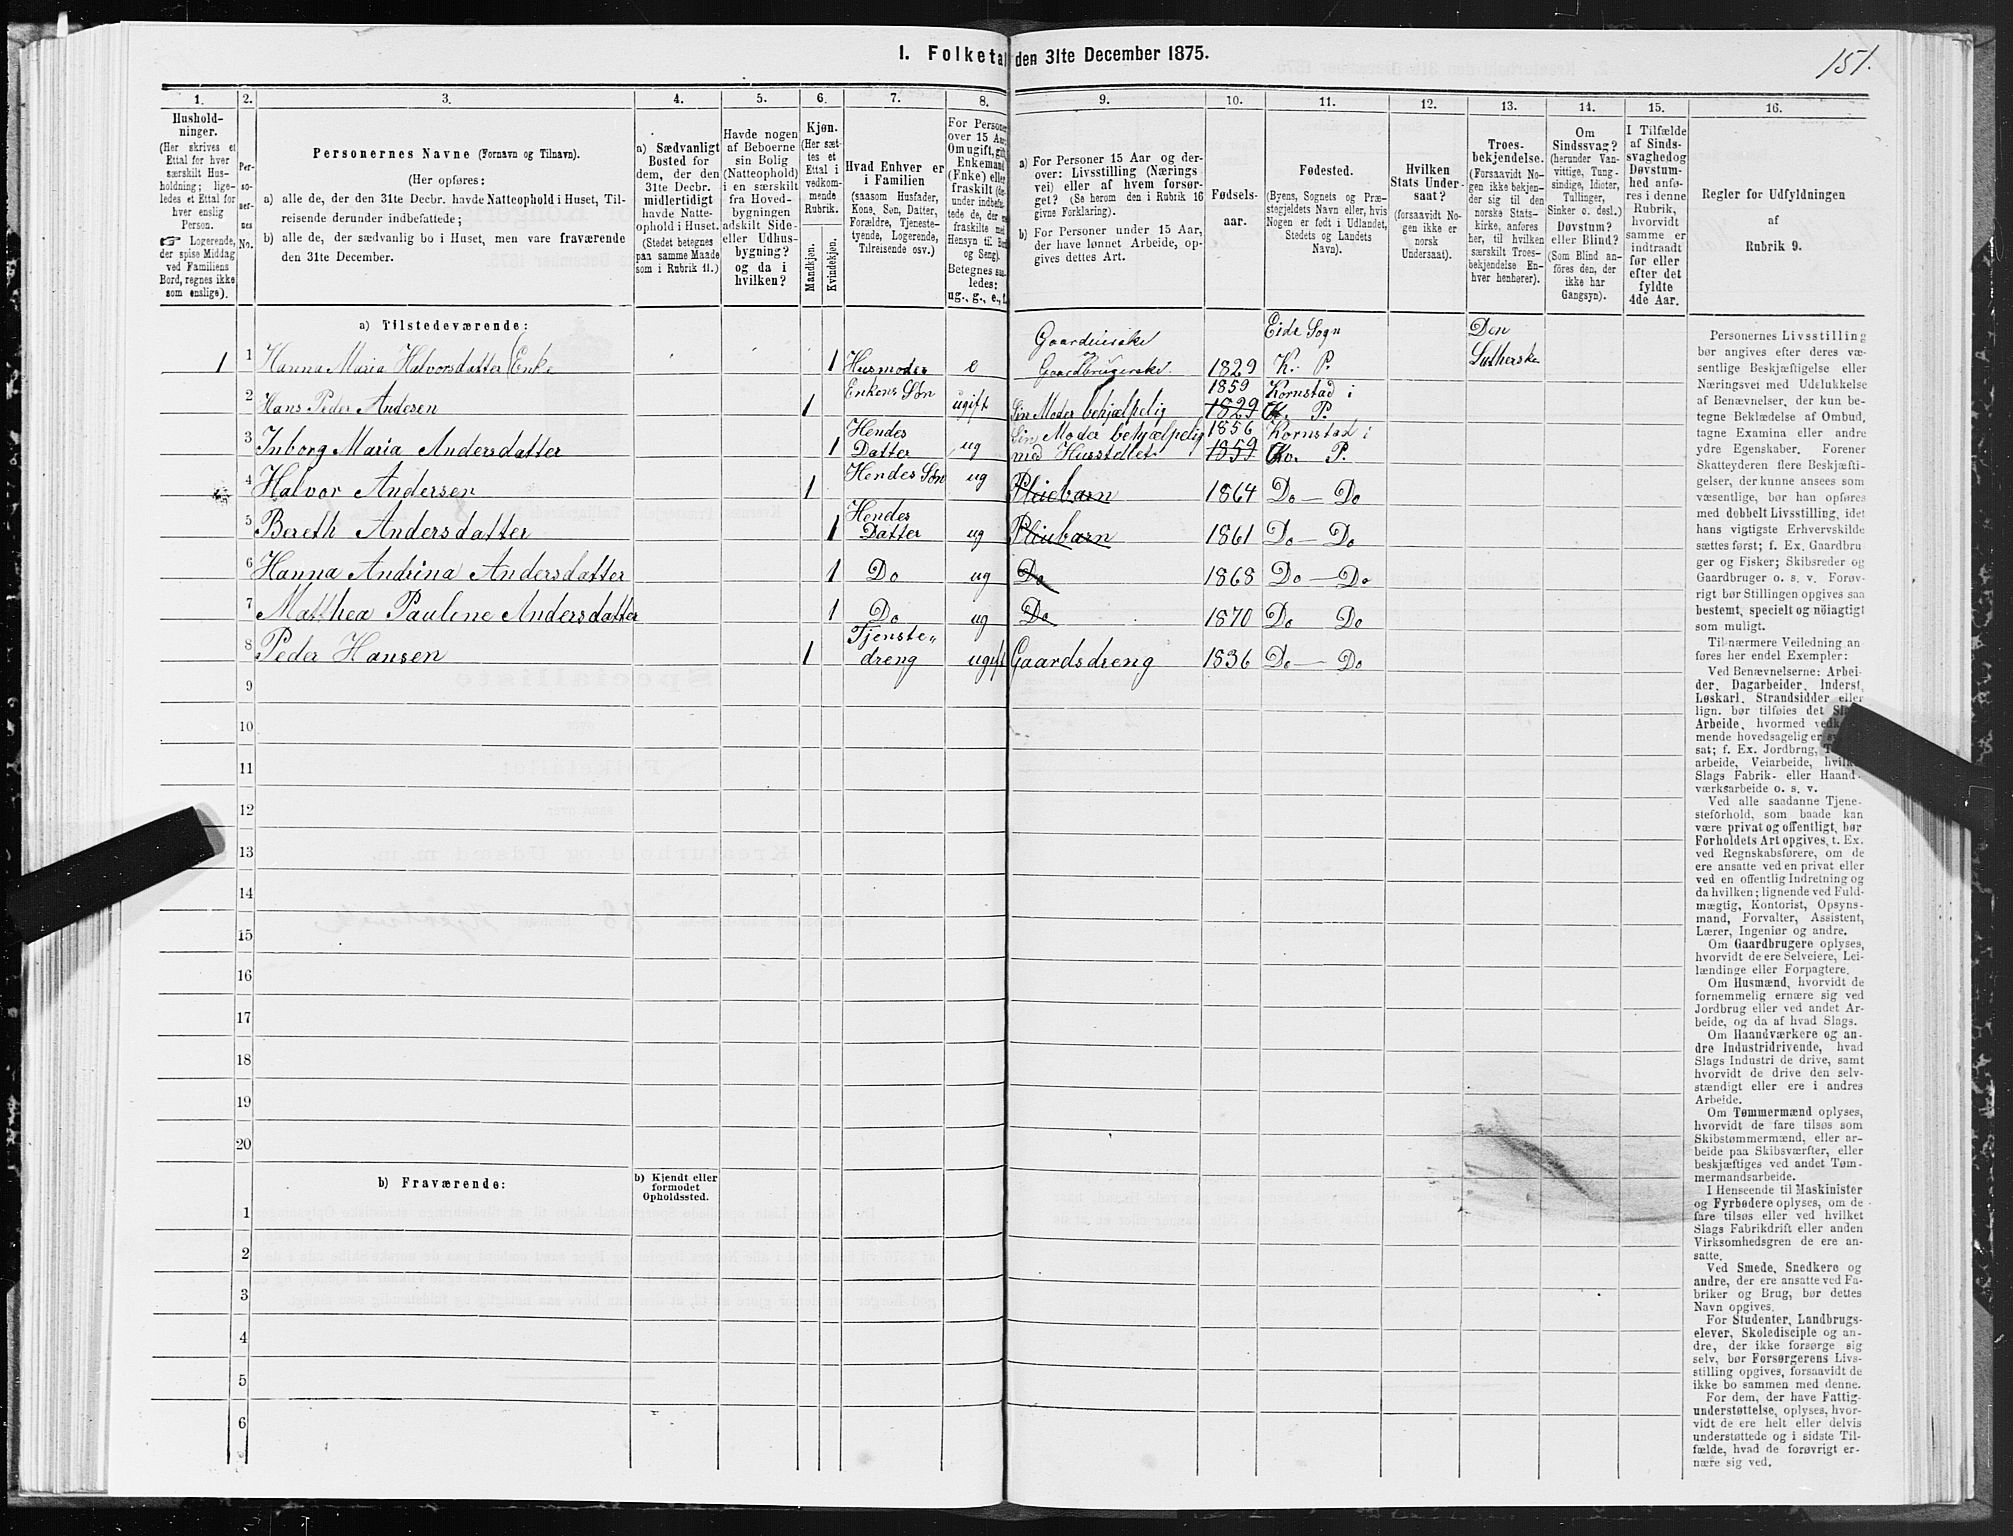 151.
I. Folketal den 31te December 1875.
1. 2. 3. 4. 5. 6. 7. 8. 9. 10. 11. 12. 13. 14. 15. 16.
Hushold-
ninger.
(Her skrives et
Ettal for hver
særskilt Hus-
holdning; lige-
ledes et Ettal for
hver enslig
Person.
☞ Logerende,
der spise Middag
ved Familiens
Bord, regnes ikke
som enslige).
Per-
so-
ner-
nes
No.
Personernes Navne (Fornavn og Tilnavn).
(Her opføres:
a) alle de, der den 31te Decbr. havde Natteophold i Huset, Til-
reisende derunder indbefattede;
b) alle de, der sædvanlig bo i Huset, men vare fraværende
den 31te December.
a) Sædvanligt
Bosted for
dem, der den
31te Decbr.
midlertidigt
havde Natte-
ophold i Huset.
(Stedet betegnes
paa samme Maade
som i Rubrik 11.)
Havde nogen
af Beboerne
sin Bolig
(Natteophold)
i en særskilt
fra Hoved-
bygningen
adskilt Side-
eller Udhus-
bygning?
og da i
hvilken?
Kjøn.
(Her sæt-
tes et
Ettal i
vedkom-
mende
Rubrik.
Mandkjøn.
Kvindekjøn.
Hvad Enhver er
i Familien
(saasom Husfader,
Kone, Søn, Datter,
Forældre, Tjeneste-
tyende, Logerende,
Tilreisende osv.)
For Personer
over 15 Aar:
Om ugift, gift,
Enkemand
(Enke) eller
fraskilt
Hensyn til Bord
og Seng).
Betegnes saa-
ledes:
ug., g., e., f.
a) For Personer 15 Aar og der-
over: Livsstilling (Nærings-
vei) eller af hvem forsør-
get? (Se herom den i Rubrik 16
givne Forklaring).
b) For Personer under 15 Aar,
der have lønnet Arbeide, op-
gives dettes Art.
Fødsels-
aar.
Fødested.
(Byens, Sognets og Præ-
stegjeldets Navn eller, hvis
Nogen er født i Udlandet,
Stedets og Landets
Navn).
Hvilken
Stats Under-
saat?
(forsaavidt No-
gen ikke er
norsk
Undersaat).
Troes-
bekjendelse.
(Forsaavidt No-
gen ikke bekjen-
der sig til den
norske Stats-
kirke, anføres
her, til hvilken
særskilt Troes-
bekjendelse En-
hver henhører).
Om
Sindssvag?
(herunder Van-
vittige, Tung-
sindige, Idioter,
Tullinger,
Sinker o. desl.)
Døvstum?
eller Blind?
(Som Blind an-
føres den, der
ikke har
Gangsyn).
I Tilfælde
af Sinds-
svaghed og
Døvstum-
hed anfø-
res i denne
Rubrik,
hvorvidt
samme er
indtraadt
før eller
efter det
fyldte
4de Aar.
Regler for Udfyldningen
af
Rubrik 9.
a) Tilstedeværende:
1 1 Hanna Maria Halvorsdatter (Enke 1 Husmoder e Gaardeierske og Gaardbrugerske 1829 Eide Sogn K. P. Den Lutherske
2 Hans Peder Andesen 1 Enkens Søn ugift Sin Moder behjælpelig 1859 1829 Kornstad i K. P.
3 Inborg Maria Andersdatter 1 Hendes Datter ug Sin Moder behjælpelig med Husstellet 1856 1859 Kornstad i Kv. P.
4 Halvor Andersen 1 Hendes Søn ug Pleiebarn 1864 Do — Do
5 Bereth Andersdatter 1 Hendes Datter ug Pleiebarn 1861 Do — Do
6 Hanna Andrina Andersdatter 1 Do ug Do 1868 Do — Do
7 Matthea Pauline Andersdatter 1 Do ug Do 1870 Do Do
8 Peder Hansen 1 Tjenste„ dreng ugift Gaardsdreng 1836 Do — Do
9
10
11
12
13
14
15
16
17
18
19
20
b) Fraværende:
b) Kjendt eller
formodet
Opholdssted.
1
2
3
4
5
6
Personernes Livsstilling
bør angives efter deres væ-
sentlige Beskjæftigelse eller
Næringsvei med Udelukkelse
af Benævnelser, der kun be-
tegne Beklædelse af Ombud,
tagne Examina eller andre
ydre Egenskaber. Forener
Skatteyderen flere Beskjæfti-
gelser, der kunne ansees som
væsentlige, bør han opføres
med dobbelt Livsstilling, idet
hans vigtigste Erhvervskilde
sættes først; f. Ex. Gaardbru-
ger og Fisker; Skibsreder og
Gaardbruger o. s. v. Forøv-
rigt bør Stillingen opgives saa
bestemt, specielt og nöiagtigt
som muligt.
Til nærmere Veiledning an-
føres her endel Exempler:
Ved Benævnelserne: Arbei-
der, Dagarbeider, Inderst,
Løskarl, Strandsidder eller
lign. bør tilføies det Slags
Arbeide, hvormed vedkom-
mende hovedsagelig er syssel-
sat; f. Ex. Jordbrug,
arbeide, Veiarbeide, hvilket
Slags Fabrik- eller Haand-
værksarbeide o. s. v.
Ved alle saadanne Tjene-
steforhold, som baade kan
være privat og offentligt, bør
Forholdets Art opgives, f. Ex.
ved Regnskabsførere, om de
ere ansatte ved en privat eller
ved en offentlig Indretning og
da hvilken; lignende ved Fuld-
mægtig, Kontorist, Opsyns-
mand, Forvalter, Assistent,
Lærer, Ingeniør og andre.
Om Gaardbrugere oplyses,
hvorvidt de ere Selveiere, Lei-
lændinge eller Forpagtere.
Om Husmænd, hvorvidt de
fornemmelig ernære sig ved
Jordbrug eller ved andet Ar-
beide, og da af hvad Slags.
Om Haandværkere og an-
dre Industridrivende, hvad
Slags Industri de drive, samt
hvorvidt de drive den selv-
stændigt eller ere i andres
Arbeide.
Om Tømmermænd oplyses,
hvorvidt de fare tilsøs som
Skibstømmermænd, eller ar-
beide paa Skibsværfter, eller
beskjæftiges ved andet Tøm-
mermandsarbeide.
I Henseende til Maskinister
og Fyrbødere oplyses, om de
fare tilsøs eller ved hvilket
Slags Fabrikdrift eller anden
Virksomhedsgren de ere an-
satte.
Ved Smede, Snedkere og
andre, der ere ansatte ved Fa-
briker og Brug, bør dettes
Navn opgives.
For Studenter, Landbrugs-
elever, Skoledisciple og an-
dre, der ikke forsørge sig
selv, bør Forsørgerens Livs-
stilling opgives, forsaavidt de
ikke bo sammen med denne.
For dem, der have Fattig-
understøttelse, oplyses, hvor-
vidt de ere helt eller delvis
understøttede og i sidste Til-
fælde, hvad de forøvrigt er-
nære sig ved.